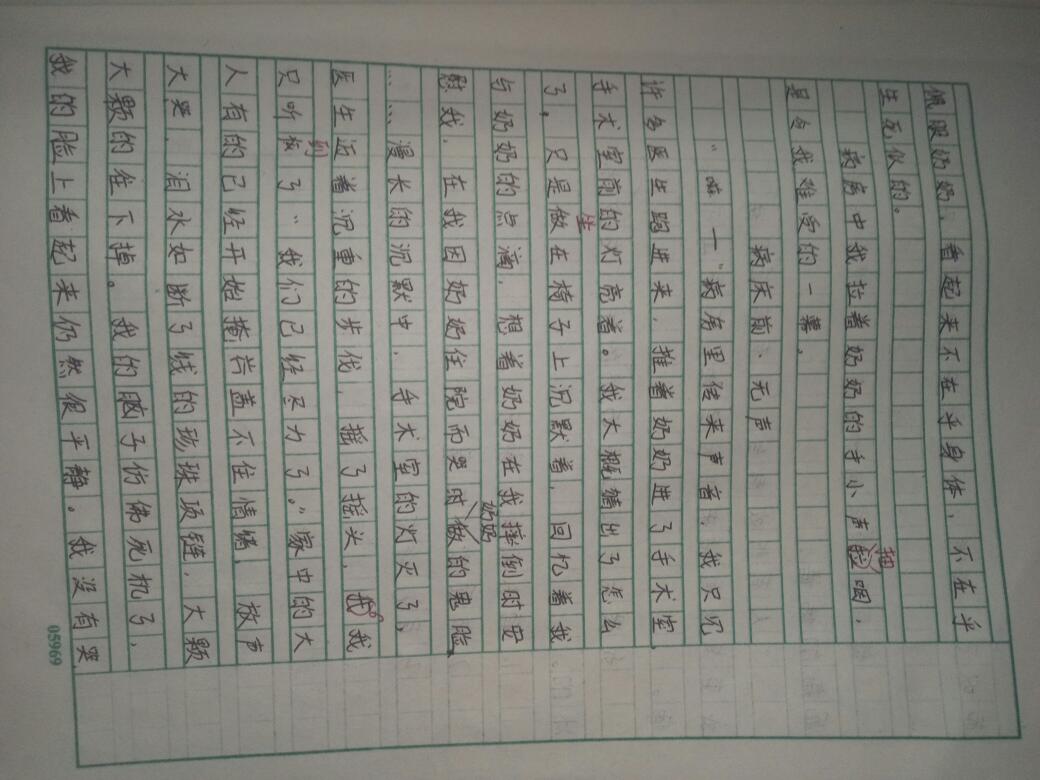 佩服奶奶,看起来不在乎身体,不在乎
生死似的。
病房中我拉着奶奶的手小声咽,
是令我难受的一幕。
病床前,无声
“嘀一”病房里传来声音,我只见
许多医生跑进来,推着奶奶进了手术室,
手术室前的灯亮着。我大概猜出了怎么
了,只是坐在椅子上沉默着,回忆着我
与奶奶的点滴,想着奶奶在我摔倒时安
慰我,在我因奶奶住院而哭时奶奶做的鬼脸
……漫长的沉默中,手术室的灯灭了,
医生迈着沉重的步伐,摇了摇头,我
只听到了“我们已经尽力了。”家中的大
人有的已经开始掩盖不住情绪,放声
大哭,泪水如断了线的珍珠项链,大颗
大颗的往下掉。我的脑子仿佛死机了,
我的脸上看起来仍然很平静。我没有哭
05969